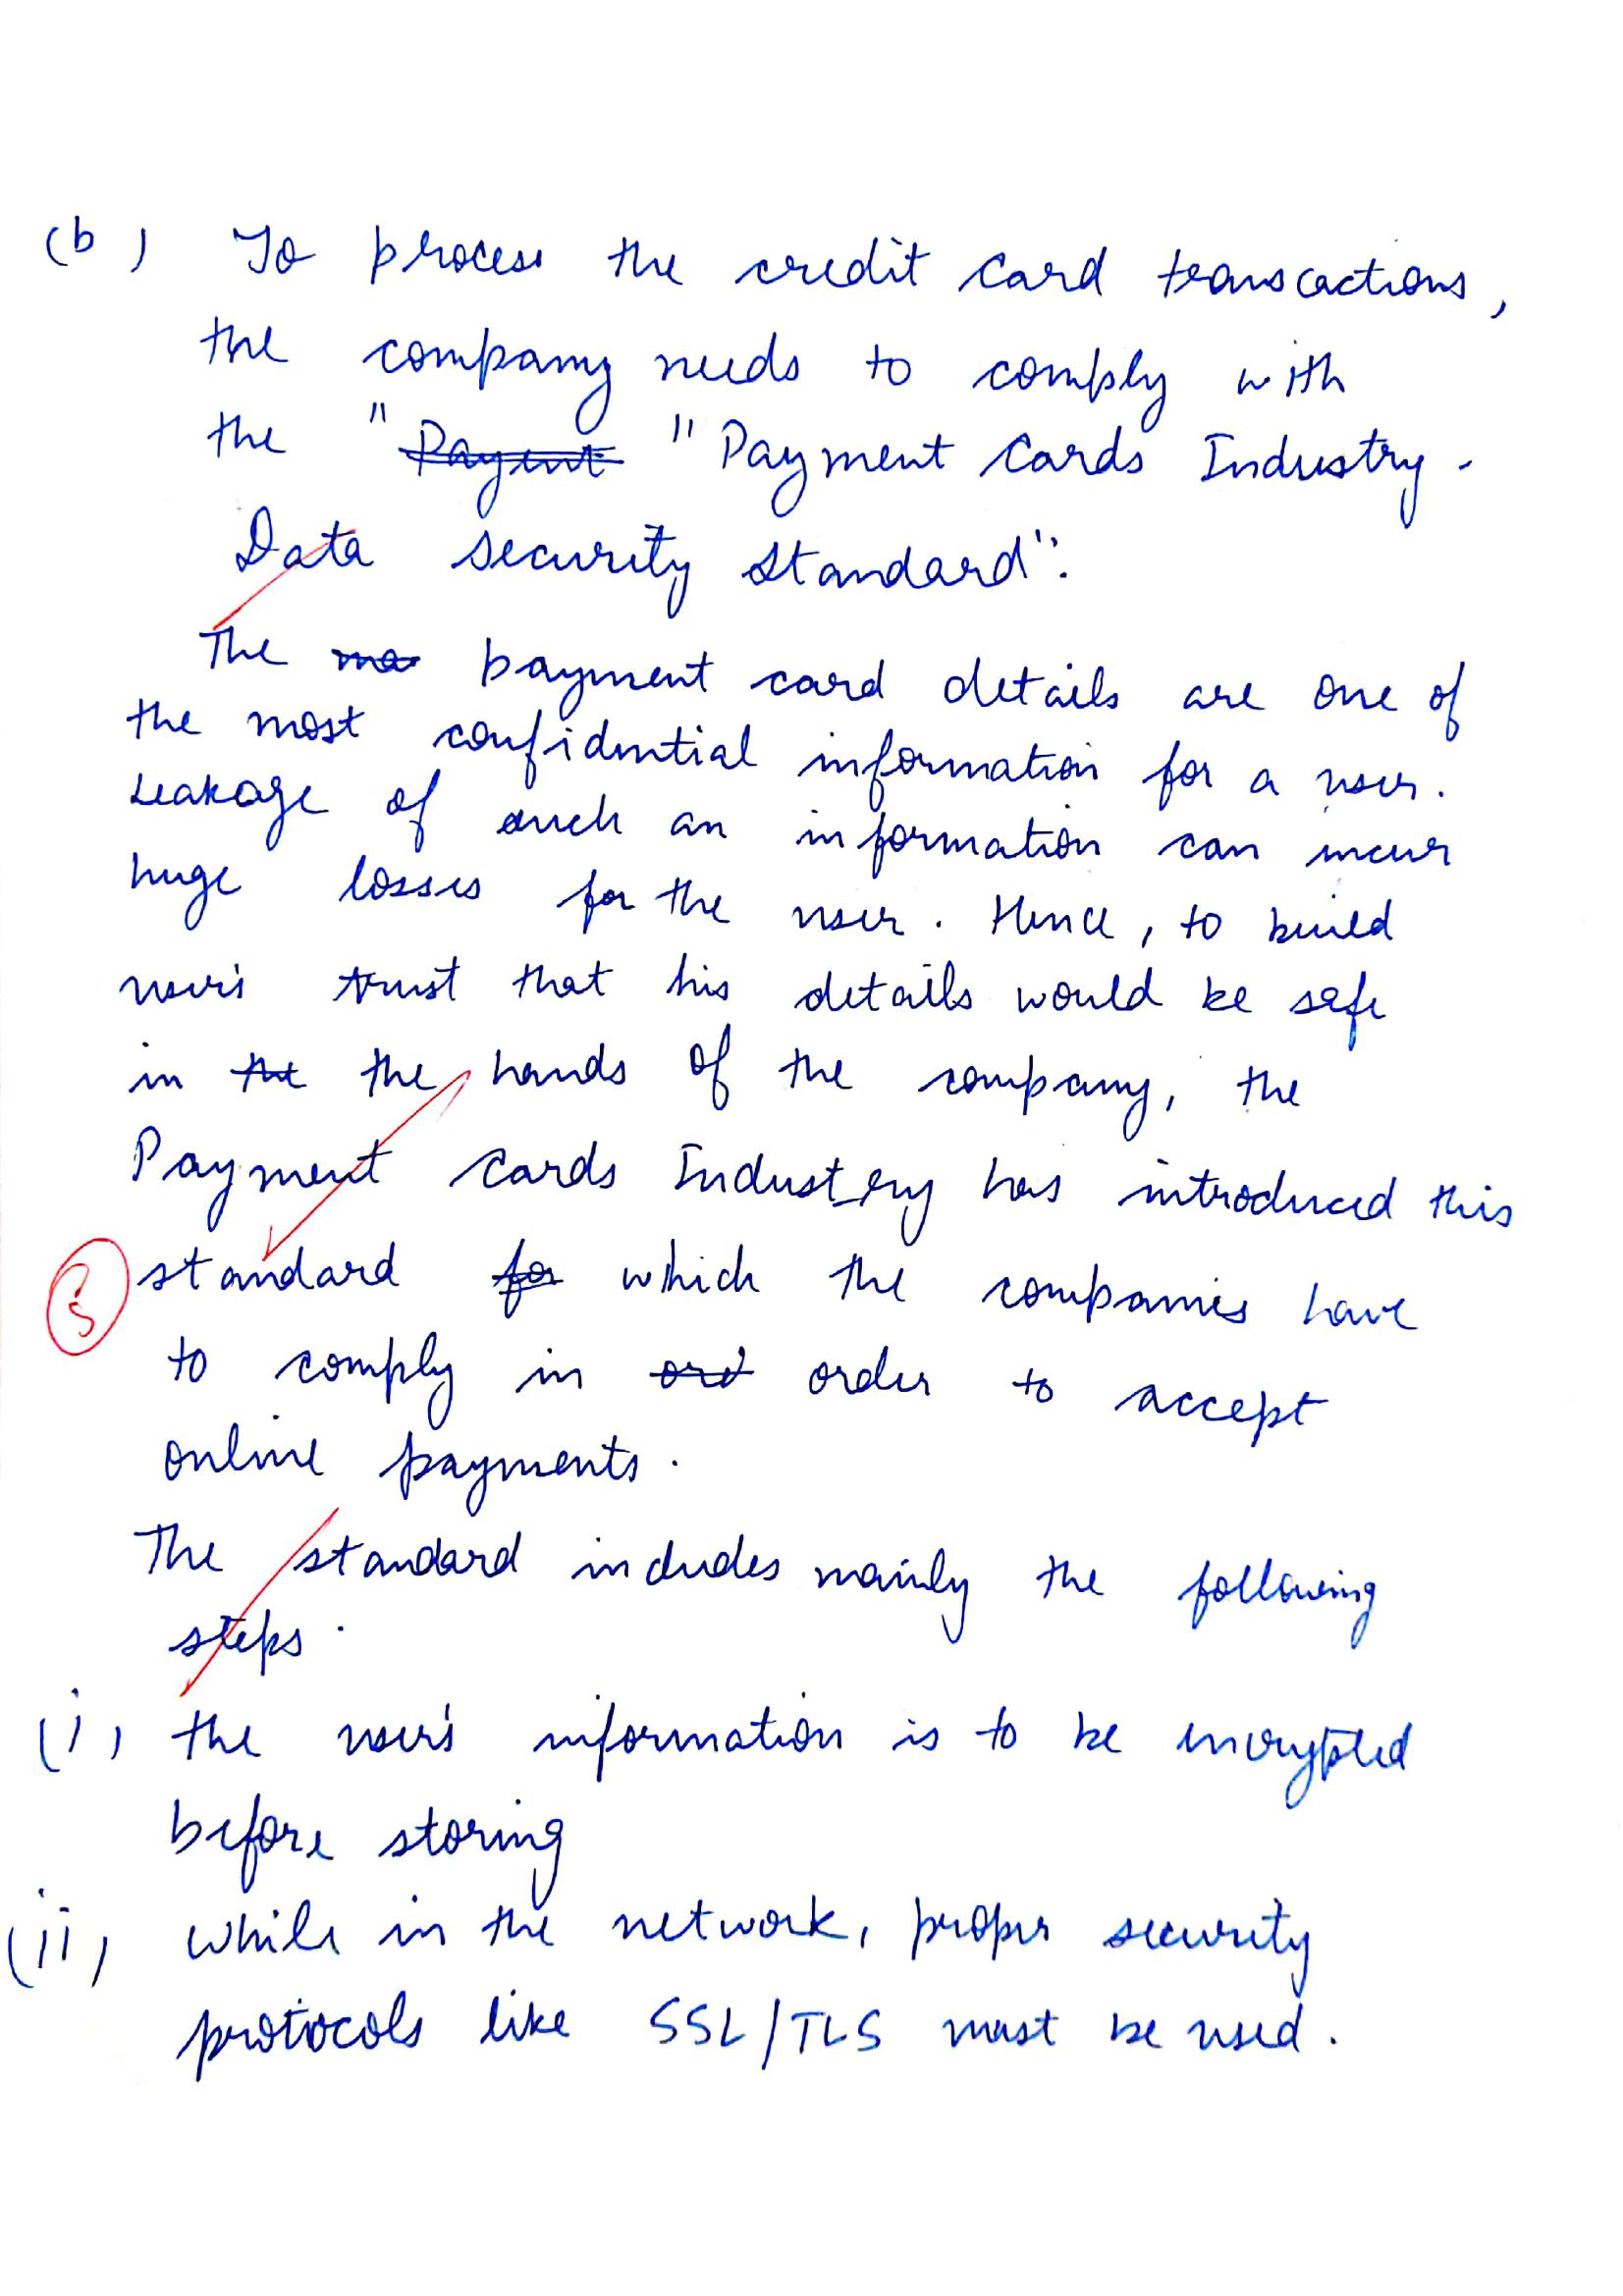 (b) To process the credit card transactions,
the company needs to comply with
the " Payent " Payment Cards Industry -
Data security standard".
The payment card details are one of
the most confidential information for a user.
Leakage of such an information can incur
huge losses for the user. Hence, to build
user's trust that his details would be safe
in the the hands of the company, the
Payment Cards Industry has introduced this
standard for which the companies have
to comply in ord order to accept
online payments.
The standard includes mainly the following
steps.
(i) the user's information is to be encrypted
before storing
(ii) while in the network, proper security
protocols like SSL/TLS must be used.